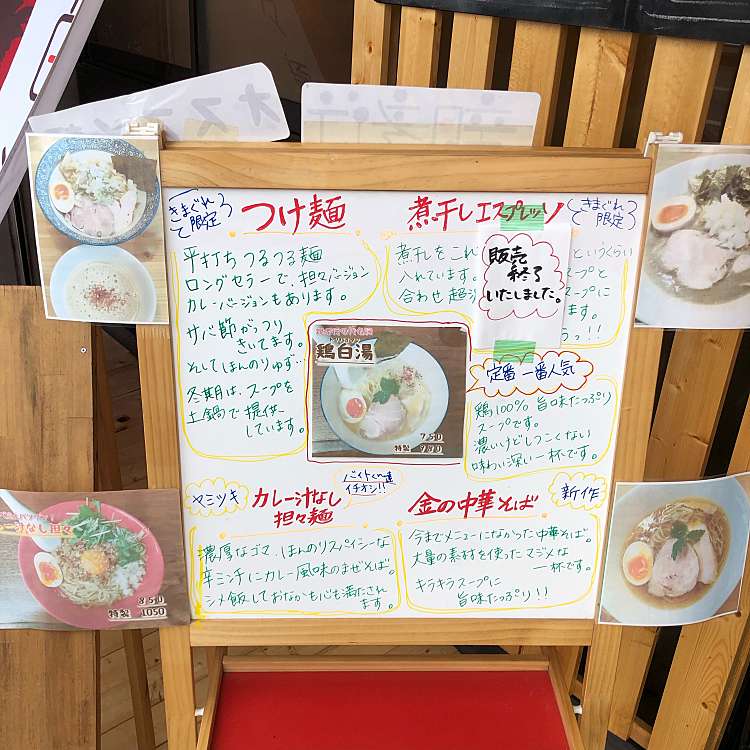 きまぐれ
限定
つけ麺
平打ちつるつる麺
ロングセラーで、担々バージョン
カレーバージョンもあります。
サバ節がっつり
きいてます。
そしてほんのりゆず…
冬期は、スープを
土鍋で提供
しています。
煮干しエスプレッソ
きまぐれ
限定
煮干しをこれ
というくらい
入れています。
スープと
合わせ超
スープに
ます。
う!!
販売
終了
いたしました。
鶏白湯
750
特製 980
定番 一番人気
鶏100% 旨味たっぷり
スープです。
濃いけどしつこくない
味わい深い一杯です。
ヤミツキ
カレー汁なし
担々麺
バイトくん達
イチオシ!!
濃厚なゴマ、ほんのりスパイシーな
辛ミンチにカレー風味のまぜそば。
シメ飯しておなかも心も満たされ
ます。
金の中華そば
新作
今までメニューになかった中華そば。
大量の素材を使ったマジメな
一杯です。
キラキラスープに
旨味たっぷり!!
汁なし担々
850
特製 1050